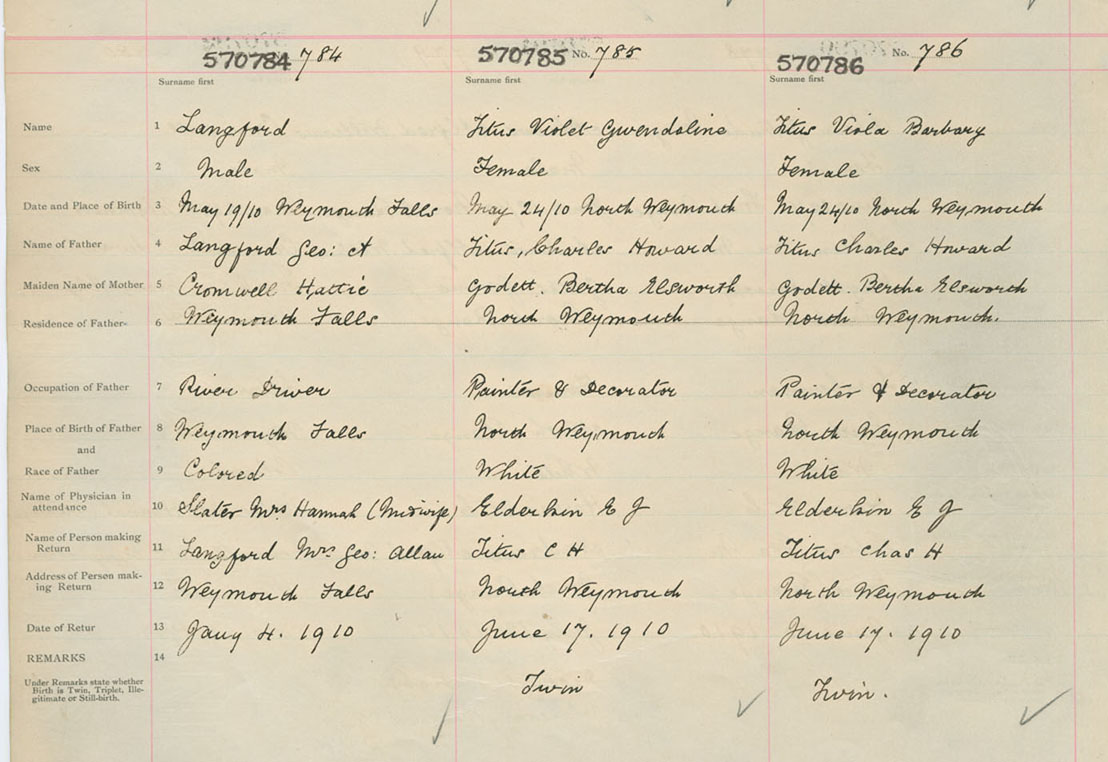 570784 784 570785 No. 785 570786 No. 786
Surname first Surname first Surname first
Name 1 Langford Titus Violet Gwendoline Titus Viola Barbary
Sex 2 Male Female Female
Date and Place of Birth 3 May 19/10 Weymouth Falls May 24/10 North Weymouth May 24/10 North Weymouth
Name of Father 4 Langford Geo: A Titus, Charles Howard Titus Charles Howard
Maiden Name of Mother 5 Cromwell Hattie Godett. Bertha Elsworth Godett. Bertha Elsworth
Residence of Father- 6 Weymouth Falls North Weymouth North Weymouth.
Occupation of Father 7 River Driver Painter & Decorator Painter & Decorator
Place of Birth of Father 8 Weymouth Falls North Weymouth North Weymouth
and
Race of Father 9 Colored White White
Name of Physician in
attendance 10 Slater Mrs Hannah (Midwife) Elderkin E J Elderkin E J
Name of Person making
Return 11 Langford Mrs. Geo: Allan Titus C H Titus Chas H
Address of Person mak-
ing Return 12 Weymouth Falls North Weymouth North Weymouth
Date of Retur 13 Jany 4. 1910 June 17. 1910 June 17. 1910
REMARKS 14
Under Remarks state whether
Birth is Twin, Triplet, Ille-
gitimate or Still-birth.
Twin Twin.